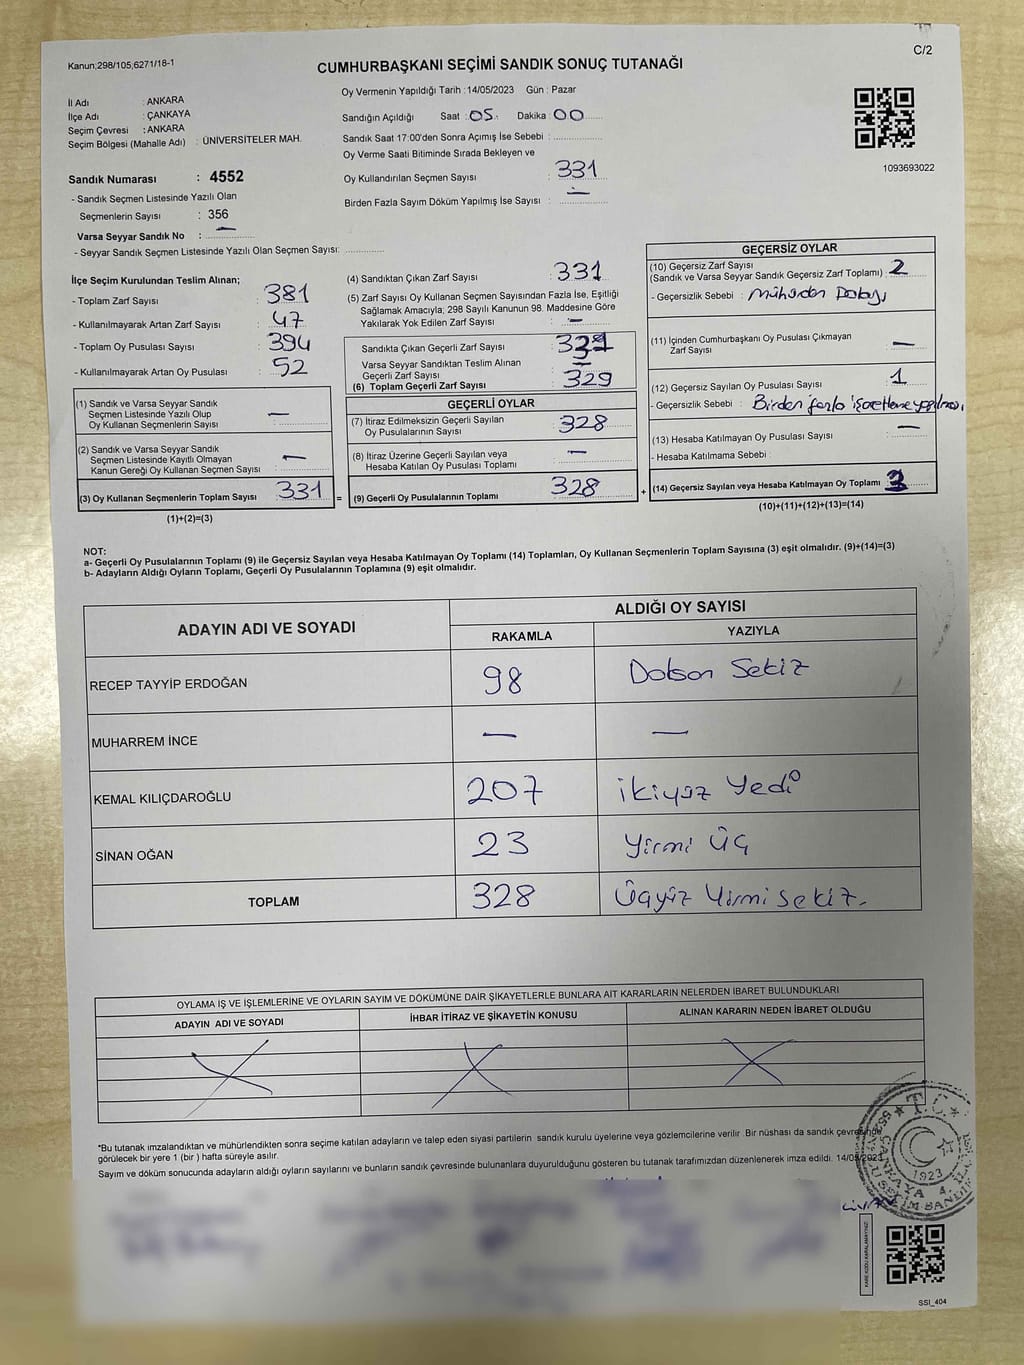 Kanun;298/105,6271/18-1
C/2
CUMHURBAŞKANI SEÇİMİ SANDIK SONUÇ TUTANAĞI
İl Adı : ANKARA
İlçe Adı : ÇANKAYA
Seçim Çevresi : ANKARA
Seçim Bölgesi (Mahalle Adı) : ÜNİVERSİTELER MAH.
Sandık Numarası : 4552
- Sandık Seçmen Listesinde Yazılı Olan
Seçmenlerin Sayısı : 356
Varsa Seyyar Sandık No : —
- Seyyar Sandık Seçmen Listesinde Yazılı Olan Seçmen Sayısı:
Oy Vermenin Yapıldığı Tarih : 14/05/2023 Gün : Pazar
Sandığın Açıldığı Saat : 05 Dakika : 00
Sandık Saat 17:00'den Sonra Açımış İse Sebebi :
Oy Verme Saati Bitiminde Sırada Bekleyen ve
Oy Kullandırılan Seçmen Sayısı : 331
Birden Fazla Sayım Döküm Yapılmış İse Sayısı : —
1093693022
İlçe Seçim Kurulundan Teslim Alınan;
- Toplam Zarf Sayısı : 381
- Kullanılmayarak Artan Zarf Sayısı : 47
- Toplam Oy Pusulası Sayısı : 394
- Kullanılmayarak Artan Oy Pusulası : 52
(1) Sandık ve Varsa Seyyar Sandık
Seçmen Listesinde Yazılı Olup
Oy Kullanan Seçmenlerin Sayısı : —
(2) Sandık ve Varsa Seyyar Sandık
Seçmen Listesinde Kayıtlı Olmayan
Kanun Gereği Oy Kullanan Seçmen Sayısı : —
(3) Oy Kullanan Seçmenlerin Toplam Sayısı : 331 =
(1)+(2)=(3)
(4) Sandıktan Çıkan Zarf Sayısı : 331
(5) Zarf Sayısı Oy Kullanan Seçmen Sayısından Fazla İse, Eşitliği
Sağlamak Amacıyla; 298 Sayılı Kanunun 98. Maddesine Göre
Yakılarak Yok Edilen Zarf Sayısı : —
Sandıkta Çıkan Geçerli Zarf Sayısı :
Varsa Seyyar Sandıktan Teslim Alınan
Geçerli Zarf Sayısı : —
(6) Toplam Geçerli Zarf Sayısı : 329
GEÇERLİ OYLAR
(7) İtiraz Edilmeksizin Geçerli Sayılan
Oy Pusulalarının Sayısı : 328
(8) İtiraz Üzerine Geçerli Sayılan veya
Hesaba Katılan Oy Pusulası Toplamı : —
(9) Geçerli Oy Pusulalarının Toplamı : 328 +
GEÇERSİZ OYLAR
(10) Geçersiz Zarf Sayısı
(Sandık ve Varsa Seyyar Sandık Geçersiz Zarf Toplamı) : 2
- Geçersizlik Sebebi : Mühürden Dolayı
(11) İçinden Cumhurbaşkanı Oy Pusulası Çıkmayan
Zarf Sayısı : —
(12) Geçersiz Sayılan Oy Pusulası Sayısı : 1
- Geçersizlik Sebebi : Birden fazla işaretleme yapılması
(13) Hesaba Katılmayan Oy Pusulası Sayısı : —
- Hesaba Katılmama Sebebi :
(14) Geçersiz Sayılan veya Hesaba Katılmayan Oy Toplamı : 3
(10)+(11)+(12)+(13)=(14)
NOT:
a- Geçerli Oy Pusulalarının Toplamı (9) ile Geçersiz Sayılan veya Hesaba Katılmayan Oy Toplamı (14) Toplamları, Oy Kullanan Seçmenlerin Toplam Sayısına (3) eşit olmalıdır. (9)+(14)=(3)
b- Adayların Aldığı Oyların Toplamı, Geçerli Oy Pusulalarının Toplamına (9) eşit olmalıdır.
ADAYIN ADI VE SOYADI
ALDIĞI OY SAYISI
RAKAMLA YAZIYLA
RECEP TAYYİP ERDOĞAN 98 Doksan Sekiz
MUHARREM İNCE — —
KEMAL KILIÇDAROĞLU 207 ikiyüz Yedi
SİNAN OĞAN 23 Yirmi Üç
TOPLAM 328 Üçyüz Yirmi Sekiz.
OYLAMA İŞ VE İŞLEMLERİNE VE OYLARIN SAYIM VE DÖKÜMÜNE DAİR ŞİKAYETLERLE BUNLARA AİT KARARLARIN NELERDEN İBARET BULUNDUKLARI
ADAYIN ADI VE SOYADI İHBAR İTİRAZ VE ŞİKAYETİN KONUSU ALINAN KARARIN NEDEN İBARET OLDUĞU
*Bu tutanak imzalandıktan ve mühürlendikten sonra seçime katılan adayların ve talep eden siyasi partilerin sandık kurulu üyelerine veya gözlemcilerine verilir .Bir nüshası da sandık çevresinde
görülecek bir yere 1 (bir ) hafta süreyle asılır.
Sayım ve döküm sonucunda adayların aldığı oyların sayılarını ve bunların sandık çevresinde bulunanlara duyurulduğunu gösteren bu tutanak tarafımızdan düzenlenerek imza edildi. 14/05/2023
T.C.
1923
ÇANKAYA 4.
KARE KODU KARALAMAYINIZ!
SSI_404